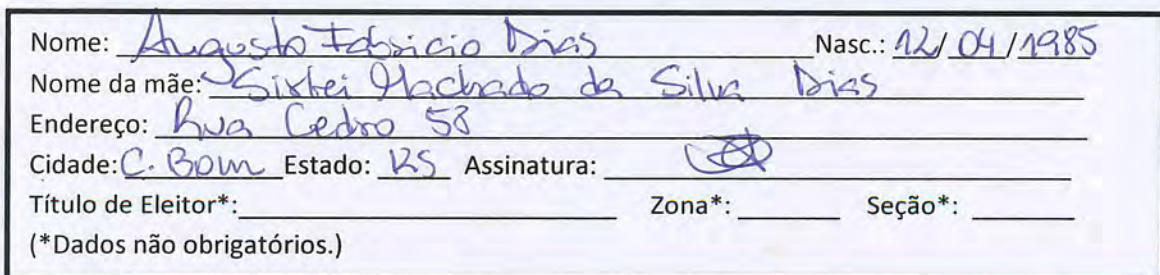 Nome: Augusto Fabricio Dias Nasc.: 12/04/1985
Nome da mãe: Sirlei Machado da Silva Dias
Endereço: Rua Cedro 58
Cidade: C. Bom Estado: RS Assinatura:
Título de Eleitor*: Zona*: Seção*:
(*Dados não obrigatórios.)